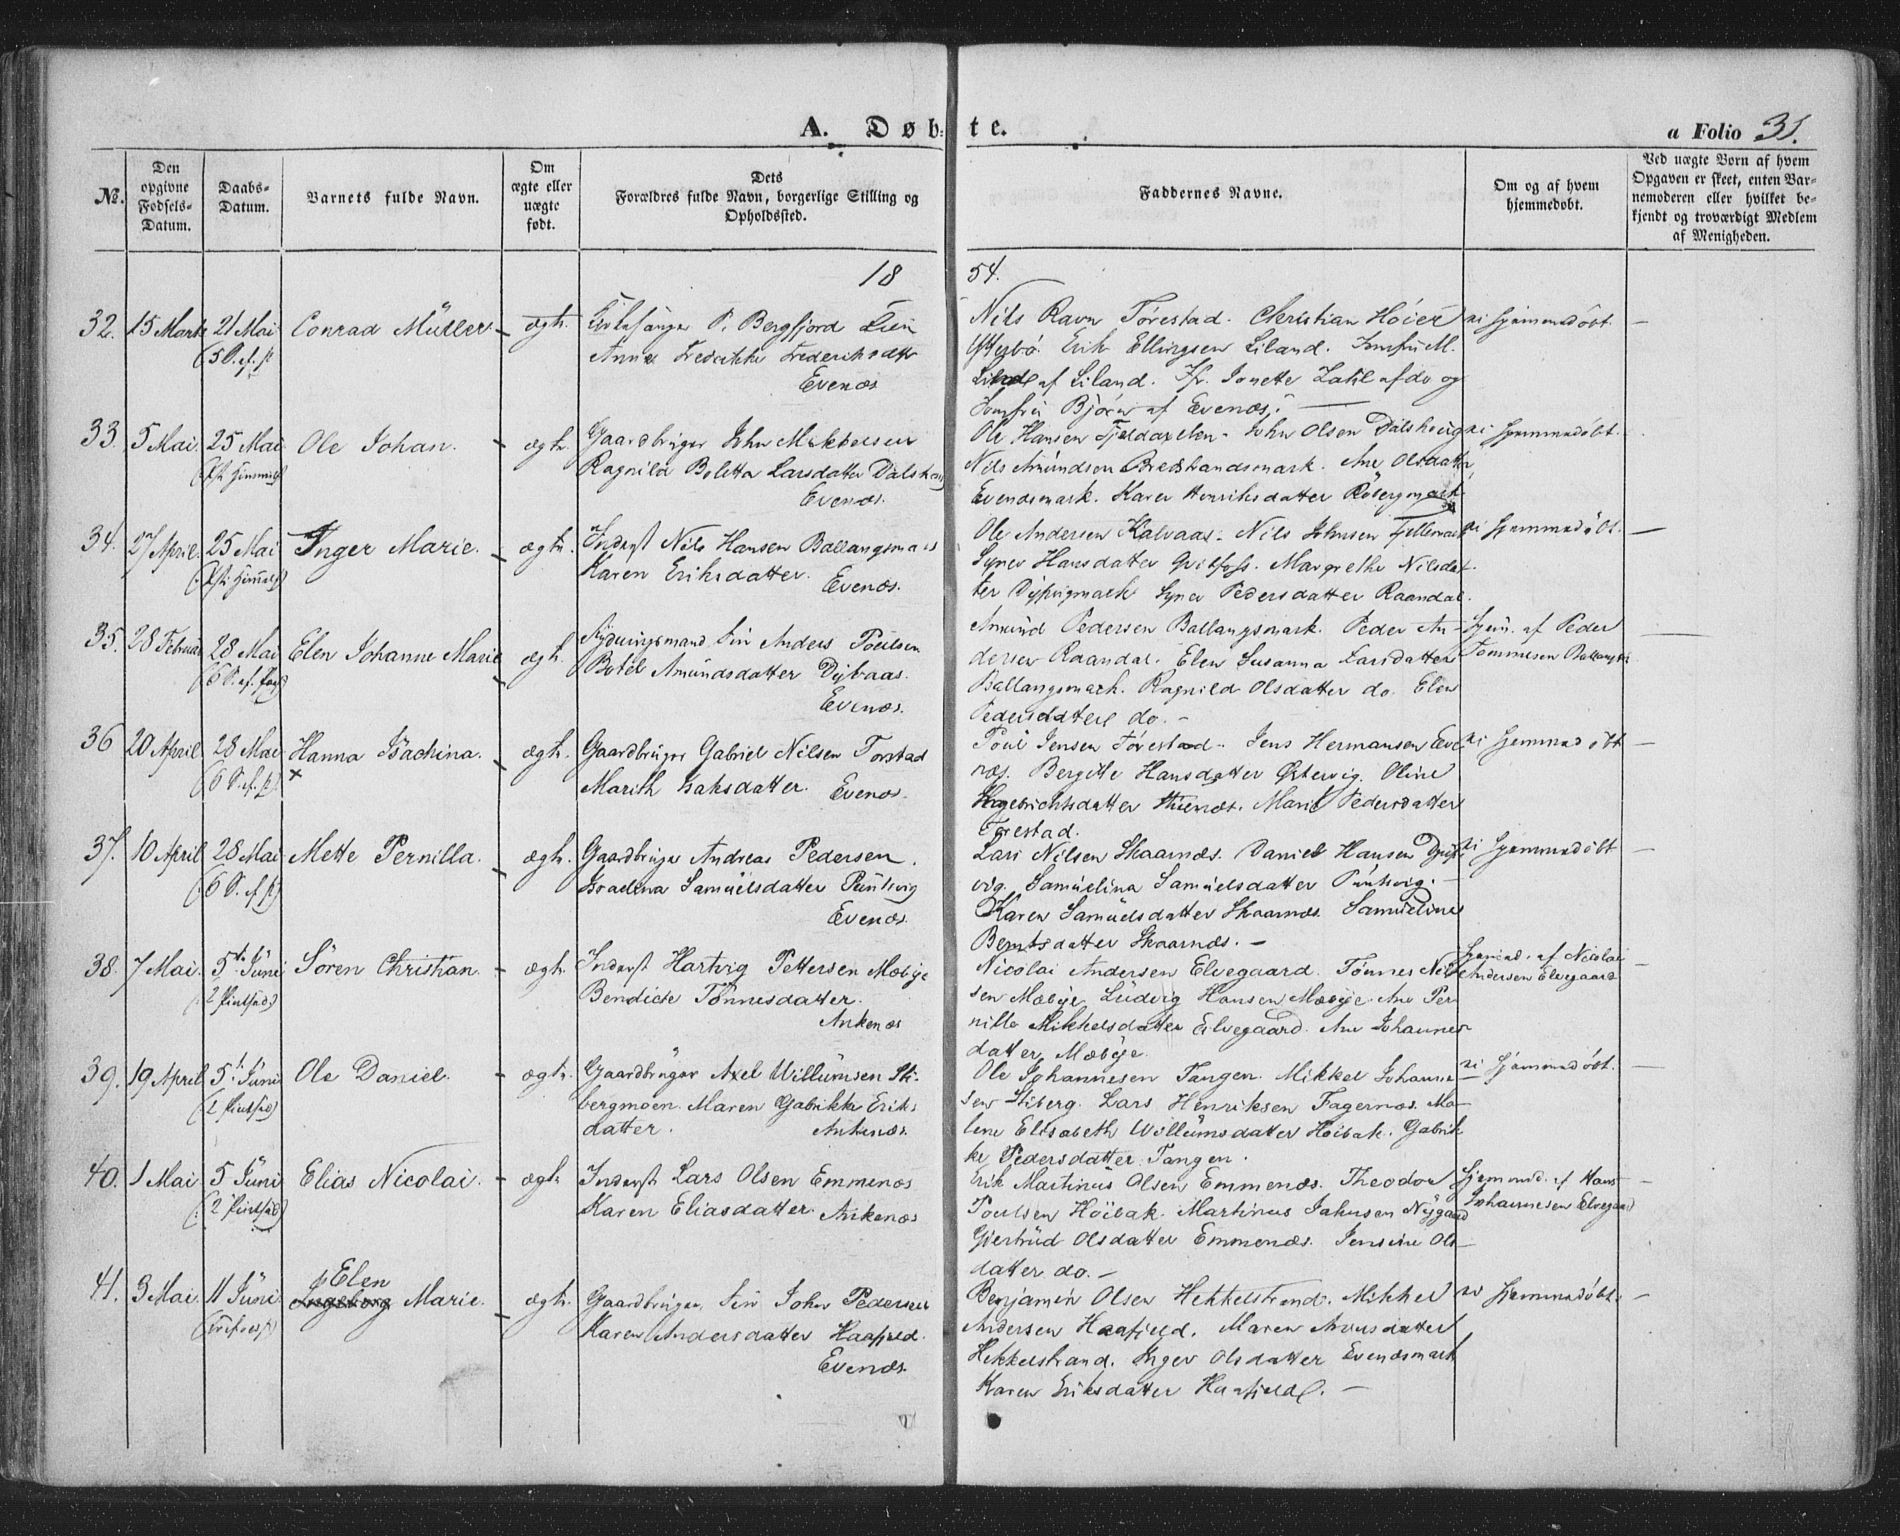 A. Døb- te.
a Folio 31.
No.
Den opgivne Fødsels-Datum.
Daabs-Datum.
Barnets fulde Navn.
Om ægte eller uægte født.
Dets Forældres fulde Navn, borgerlige Stilling og Opholdssted.
Faddernes Navne.
Om og af hvem hjemmedøbt.
Ved uægte Børn af hvem Opgaven er skeet, enten Barnemoderen eller hvilket bekjendt og troværdigt Medlem af Menigheden.
18 54.
32. 15 Marts 21 Mai Conrad Müller - ægte.
P. Bergfjord
Anna Fredrikke Frederiksdatter
Evenæs
Nils Ravn Törestad. Christian Höier
Erik Ellingsen Liland. Jomfru M.
af Liland. Jfr. Jonette Zahl af do og
Jomfru af Evenæs.
ei Hjemmedöbt. -
33. 5 Mai. 25 Mai Ole Johan. - ægte.
Gaardbruger John Mikkelsen
Ragnild Boletta Larsdatter
Evenæs.
Ole Hansen John Olsen
Nils Amundsen Ane Olsdatter
Evenæsmark. Karen Henriksdatter
ei Hjemmedöbt.
34. 27 April 25 Mai Inger Marie. - ægte.
Inderst Nils Hansen Ballangsmark
Karen Eriksdatter. Evenæs.
Ole Andersen Nils Johnsen
Hansdatter Margrethe Nilsdat-
ter Pedersdatter Raandal.
ei Hjemmedöbt. -
35. 28 Februar 28 Mai Elen Johanne Marie - ægte.
Rydningsmand Anders Poulsen
Botel Amundsdatter Dybaas.
Evenæs.
Amund Pedersen Ballangsmark. Peder An-
dersen Raandal. Elen Susanna Larsdatter
Ballangsmark. Ragnild Olsdatter do. Elen
Pedersdatter do. -
Hjem. af Peder
Tommesen
36 20 April 28 Mai Hanna Isachina. - ægte.
Gaardbruger Gabriel Nilsen Torstad
Marith Isaksdatter. Evenæs.
Poul Jensen Törestad. Jens Hermansen Eve-
næs. Bergitte Hansdatter Østervig. Oline
Ingebrichtsdatter Marit Pedersdatter
Törestad.
ei Hjemmedöbt -
37. 10 April 28 Mai Mette Pernilla. - ægte.
Gaardbruger Andreas Pedersen.
Samuelsdatter
Evenæs.
Lars Nilsen Skaarnæs. Daniel Hansen
vig. Samuelina Samuelsdatter
Karen Samuelsdatter Skaarnæs. Samueline
Berntsdatter Skaarnæs. -
ei Hjemmedöbt -
38. 7 Mai. 5te Juni Sören Christian - ægte.
(2 Pintsed)
Inderst Hartvig Pettersen Mæbye
Bendicte Tönnesdatter.
Ankenæs
Nicolai Andersen Elvegaard. Tönnes Nil-
sen Mæbye, Ludvig Hansen Mæbye. Ane Per-
nille Mikkelsdatter Elvegaard. Ane Johannes-
datter Mæbye.
Hjemmed. af Nicolai
Andersen Elvegaard -
39. 19 April 5t. Juni Ole Daniel. - ægte.
(2 Pintsed)
Gaardbruger Axel Willumsen Sti-
bergmoen. Maren Gabrikke Erik-
datter. Ankenæs.
Ole Johannesen Tangen. Mikkel Johanne-
sen Stiberg. Lars Henriksen Fagernæs. Ma-
lene Elisabeth Willumsdatter Höibak. Gabrik-
ke Pedersdatter Tangen.
ei Hjemmedöbt. -
40. 1 Mai 5 Juni Elias Nicolai. - ægte
(2 Pintsed)
Inderst Lars Olsen Emmenæs
Karen Eliasdatter. Ankenæs
Erik Martinus Olsen Emmenæs. Theodor
Poulsen Höibak. Martinus Nygaard
Gjertrud Olsdatter Emmenæs. Jensine Ols-
datter do. -
Hjemmed. af Hans
Johannesen Elvegaard -
41. 3 Mai. 11 Juni Elen Ingeborg Marie. - ægte.
Gaardbruger John Pedersen
Karen Andersdatter Haafjeld.
Evenæs.
Benjamin Olsen Hekkelstrand. Mikkel
Andersen Haafjeld. Maren
Hekkelstrand. Inger Olsdatter Evenæsmark
Karen Eriksdatter Haafjeld. -
ei Hjemmedöbt. -